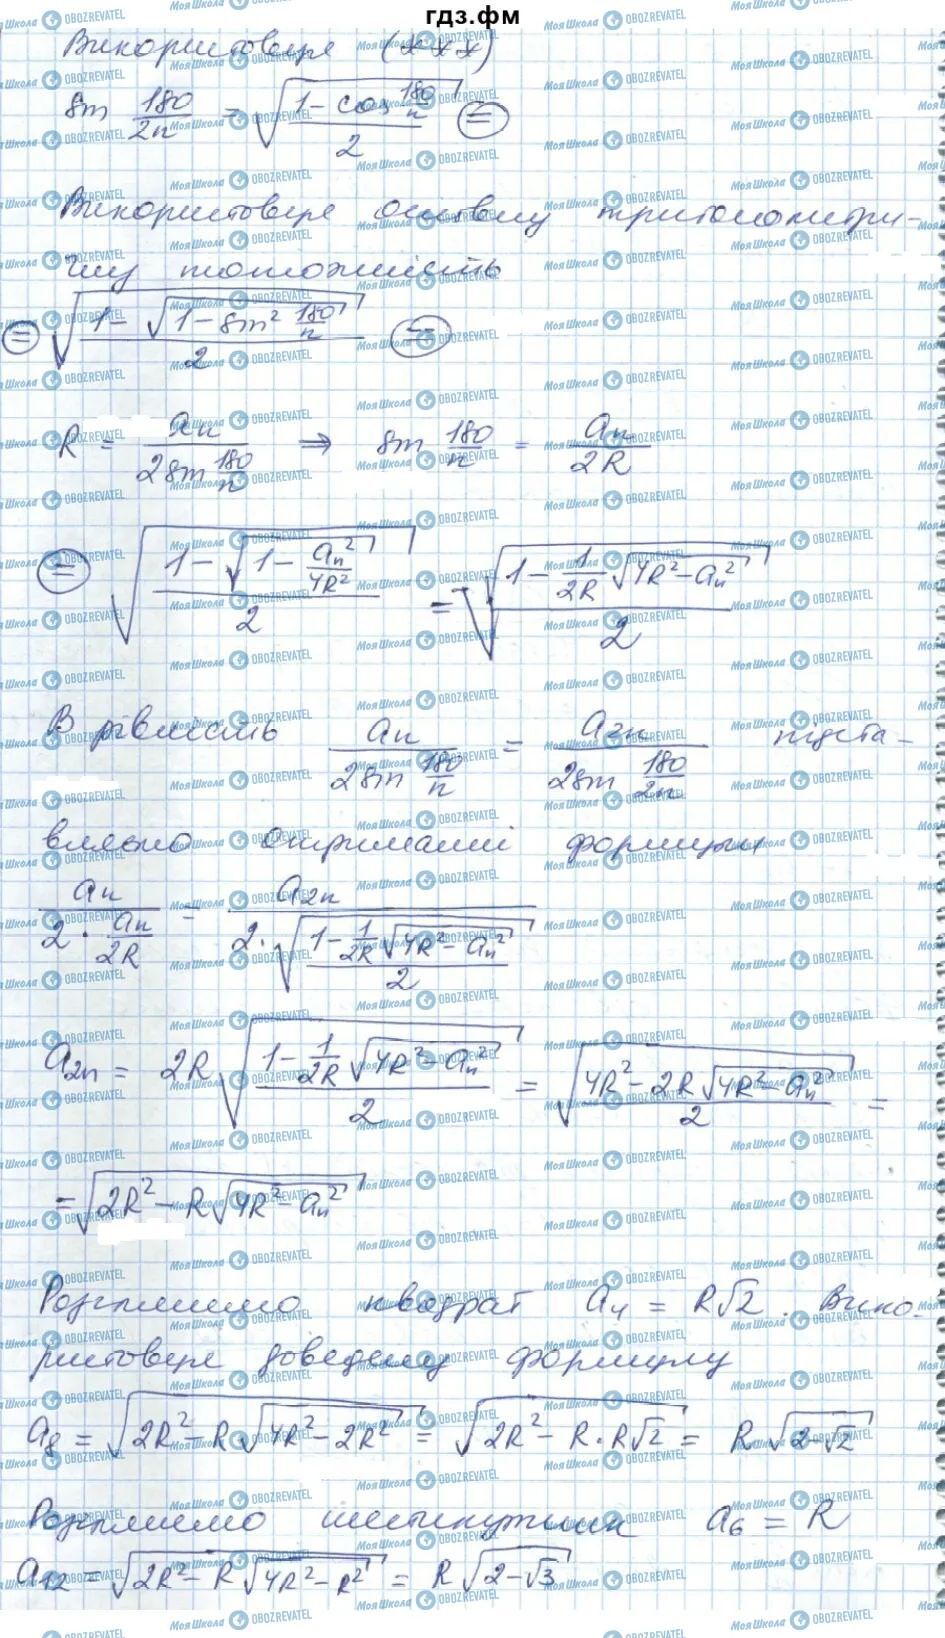 гдз.фм
Використовуе (***)
sin 180/2n = √((1 - cos 180/n)/2) ⊜
Використовуе основну тригонометри-
чну тотожність
⊜ √((1 - √(1 - sin² 180/n))/2) ⊜
R = aₙ/(2 sin 180/n) ⇒ sin 180/n = aₙ/2R
⊜ √((1 - √(1 - aₙ²/4R²))/2) = √((1 - 1/2R √(4R² - aₙ²))/2)
В рівність aₙ/(2 sin 180/n) = a₂ₙ/(2 sin 180/2n) підста-
вляємо отримані формули
aₙ/(2 · aₙ/2R) = a₂ₙ/(2 · √((1 - 1/2R √(4R² - aₙ²))/2))
a₂ₙ = 2R √((1 - 1/2R √(4R² - aₙ²))/2) = √((4R² - 2R√(4R² - aₙ²))/2) =
= √(2R² - R√(4R² - aₙ²))
Розглянемо квадрат a₄ = R√2. Вико-
ристовуе доведену формулу
a₈ = √(2R² - R√(4R² - 2R²)) = √(2R² - R · R√2) = R√(2-√2)
Розглянемо шестикутник a₆ = R
a₁₂ = √(2R² - R√(4R² - R²)) = R√(2-√3)
МояШкола OBOZREVATEL